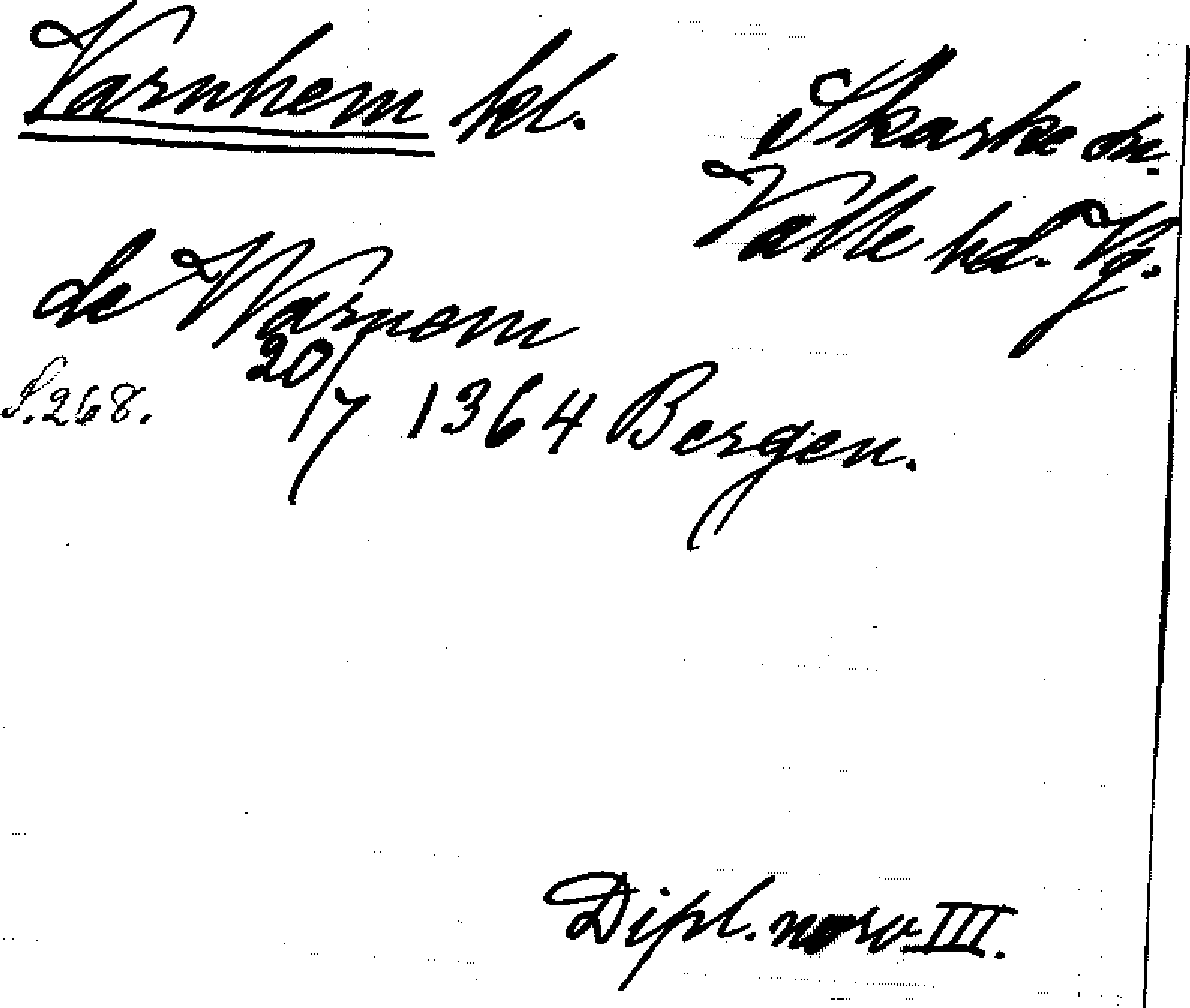 Varnhem kl.
Skarke sn.
Valle hd. Vg.
de Warnem
20/7 1364 Bergen.
S. 268.
Dipl. norv III.